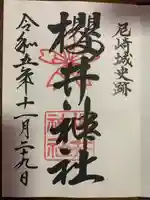 尼崎城史跡
櫻井神社
令和五年十一月二十九日